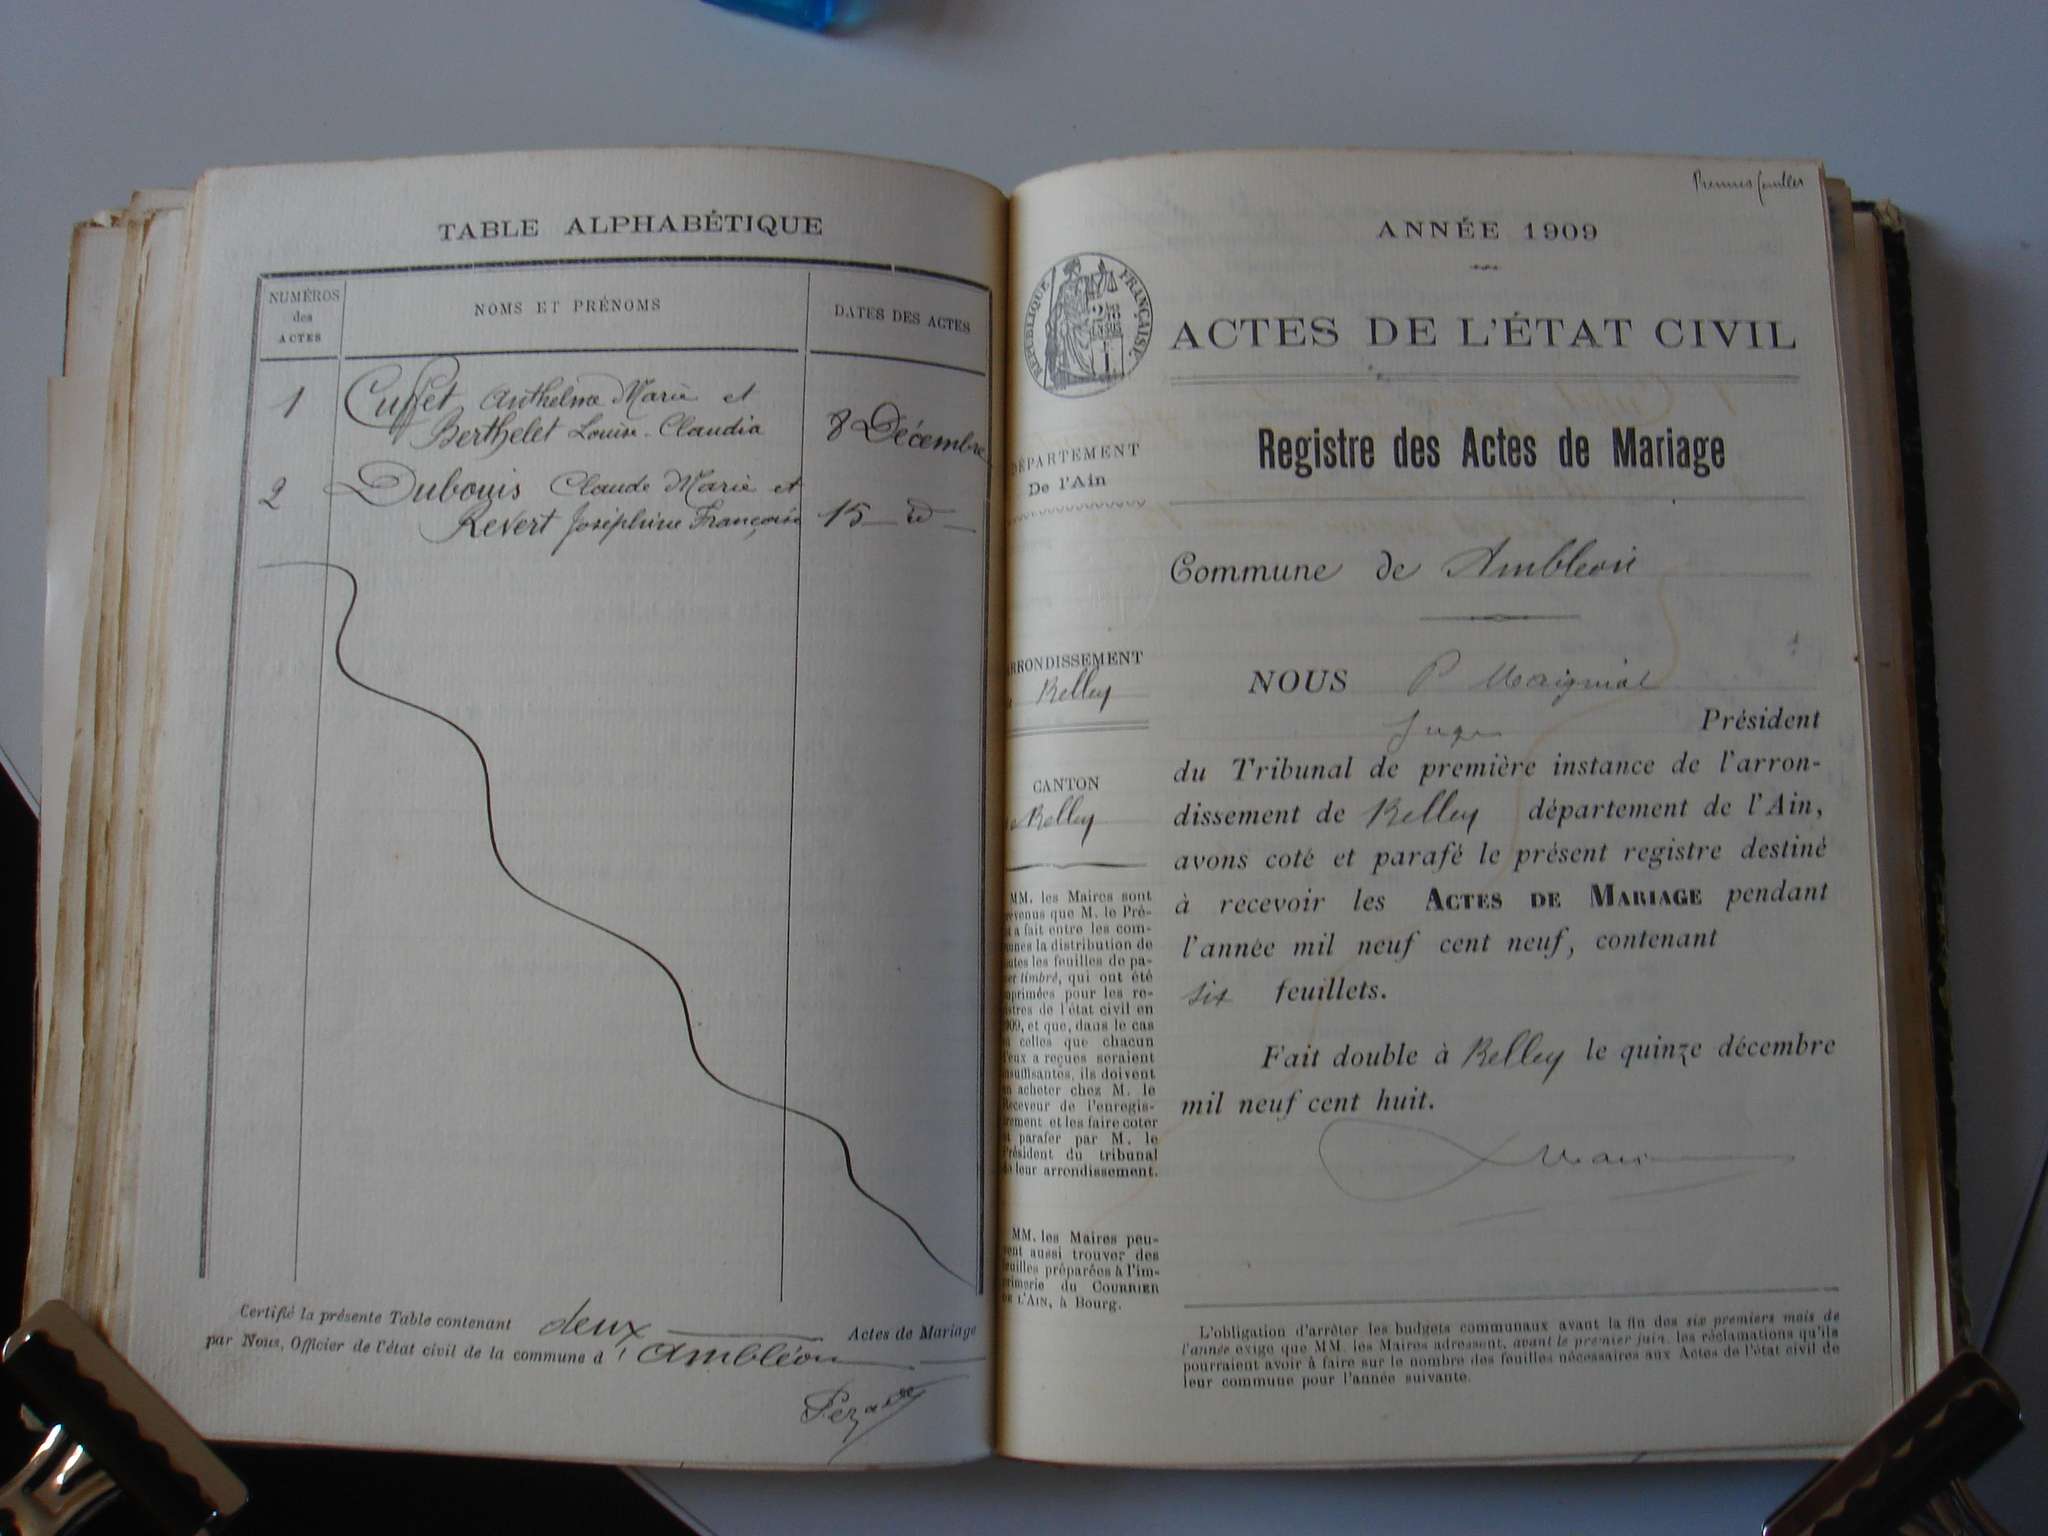 TABLE ALPHABÉTIQUE
NUMÉROS
des
ACTES
NOMS ET PRÉNOMS
DATES DES ACTES
1 Cusset Anthelme Marie et
Berthelet Louise-Claudia 8 Décembre
2 Dubouis Claude Marie et
Revert Joséphine Françoise 15 d
Certifié la présente Table contenant deux Actes de Mariage
par Nous, Officier de l'état civil de la commune d'Ambléon
Premier feuillet
ANNÉE 1909
RÉPUBLIQUE FRANÇAISE
ACTES DE L'ÉTAT CIVIL
Registre des Actes de Mariage
DÉPARTEMENT
De l'Ain
Commune de Ambléon
ARRONDISSEMENT
Belley
CANTON
Belley
MM. les Maires sont
prévenus que M. le Pré-
a fait entre les com-
munes la distribution de
toutes les feuilles de pa-
timbré, qui ont été
imprimées pour les re-
gistres de l'état civil en
1909, et que, dans le cas
celles que chacun
d'eux a reçues seraient
insuffisantes, ils doivent
en acheter chez M. le
Receveur de l'enregis-
trement et les faire coter
et parafer par M. le
Président du tribunal
de leur arrondissement.
MM. les Maires peu-
vent aussi trouver des
feuilles préparées à l'im-
primerie du COURRIER
DE L'AIN, à Bourg.
NOUS P Maigniol
Juge Président
du Tribunal de première instance de l'arron-
dissement de Belley département de l'Ain,
avons coté et parafé le présent registre destiné
à recevoir les ACTES DE MARIAGE pendant
l'année mil neuf cent neuf, contenant
six feuillets.
Fait double à Belley le quinze décembre
mil neuf cent huit.
L'obligation d'arrêter les budgets communaux avant la fin des six premiers mois de
l'année exige que MM. les Maires adressent, avant le premier juin, les réclamations qu'ils
pourraient avoir à faire sur le nombre des feuilles nécessaires aux Actes de l'état civil de
leur commune pour l'année suivante.